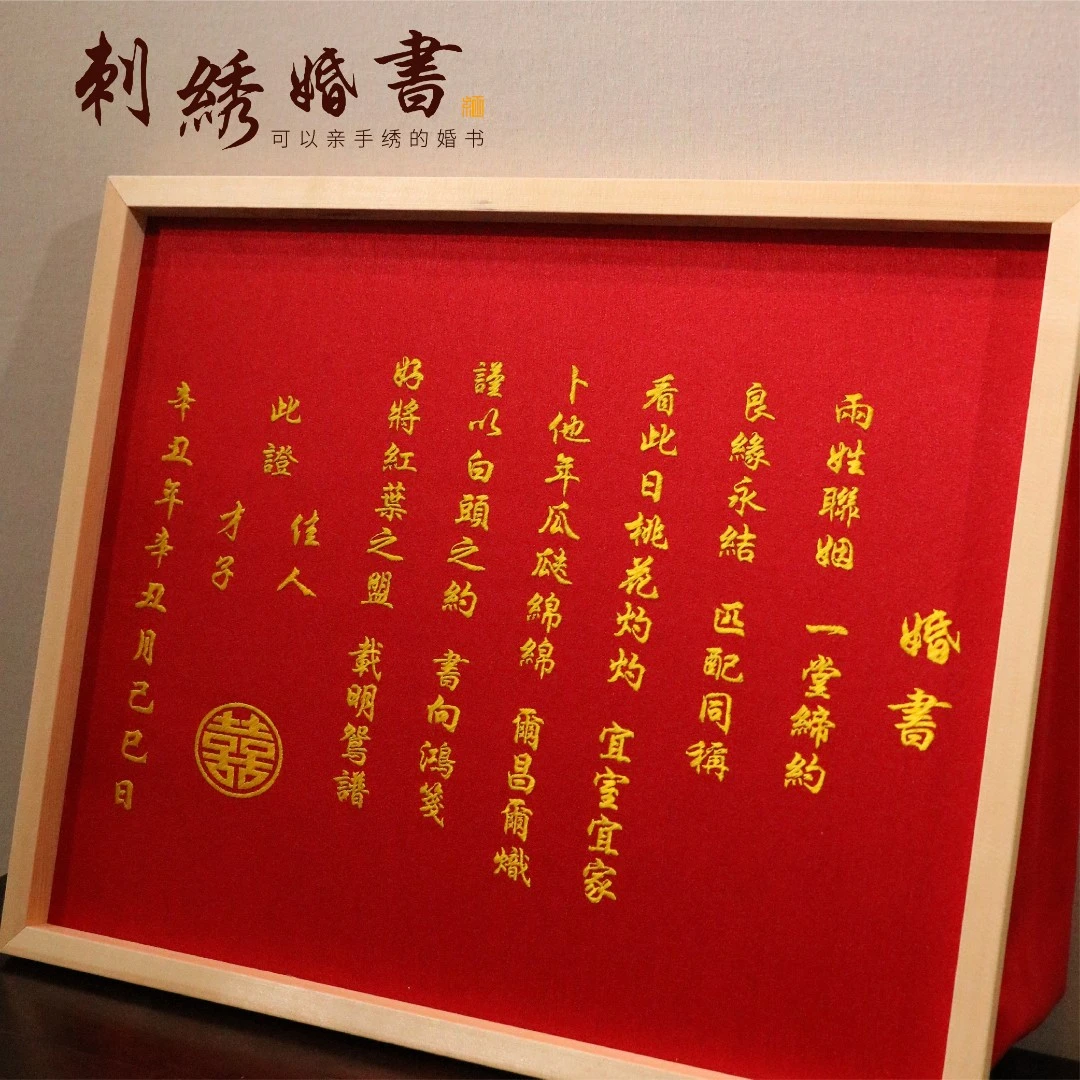 刺綉婚書
可以亲手绣的婚书
婚書
兩姓聯姻 一堂締約
良緣永結 匹配同稱
看此日桃花灼灼 宜室宜家
卜他年瓜瓞綿綿 爾昌爾熾
謹以白頭之約 書向鴻箋
好將紅葉之盟 載明鴛譜
此證
佳人
才子
辛丑年辛丑月己巳日
囍